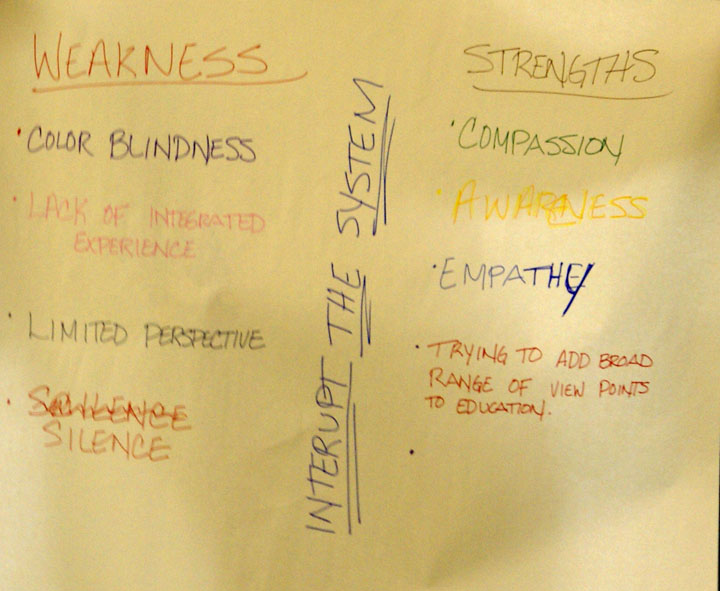 WEAKNESS
• COLOR BLINDNESS
• LACK OF INTEGRATED
EXPERIENCE
• LIMITED PERSPECTIVE
•
SILENCE
INTERUPT THE SYSTEM
STRENGTHS
• COMPASSION
• AWARENESS
• EMPATHY
• TRYING TO ADD BROAD
RANGE OF VIEW POINTS
TO EDUCATION.
•